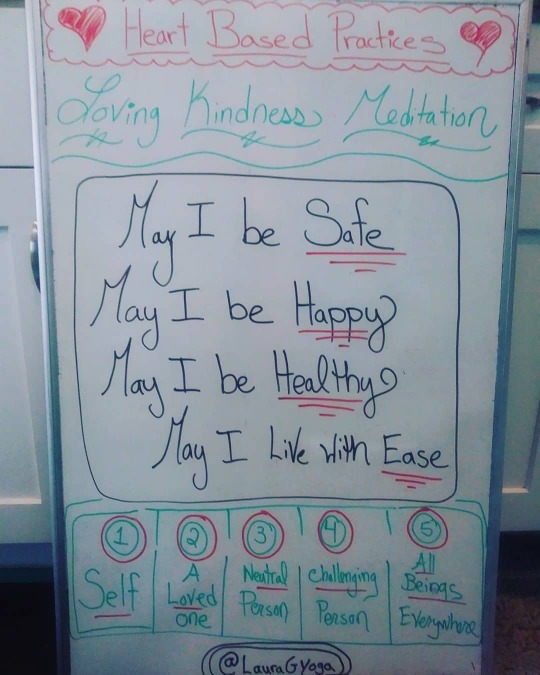 Heart Based Practices
Loving Kindness Meditation
May I be Safe
May I be Happy
May I be Healthy
May I Live with Ease
1 2 3 4 5
Self
A Loved one
Neutral Person
Challenging Person
All Beings Everywhere
@LauraGYoga